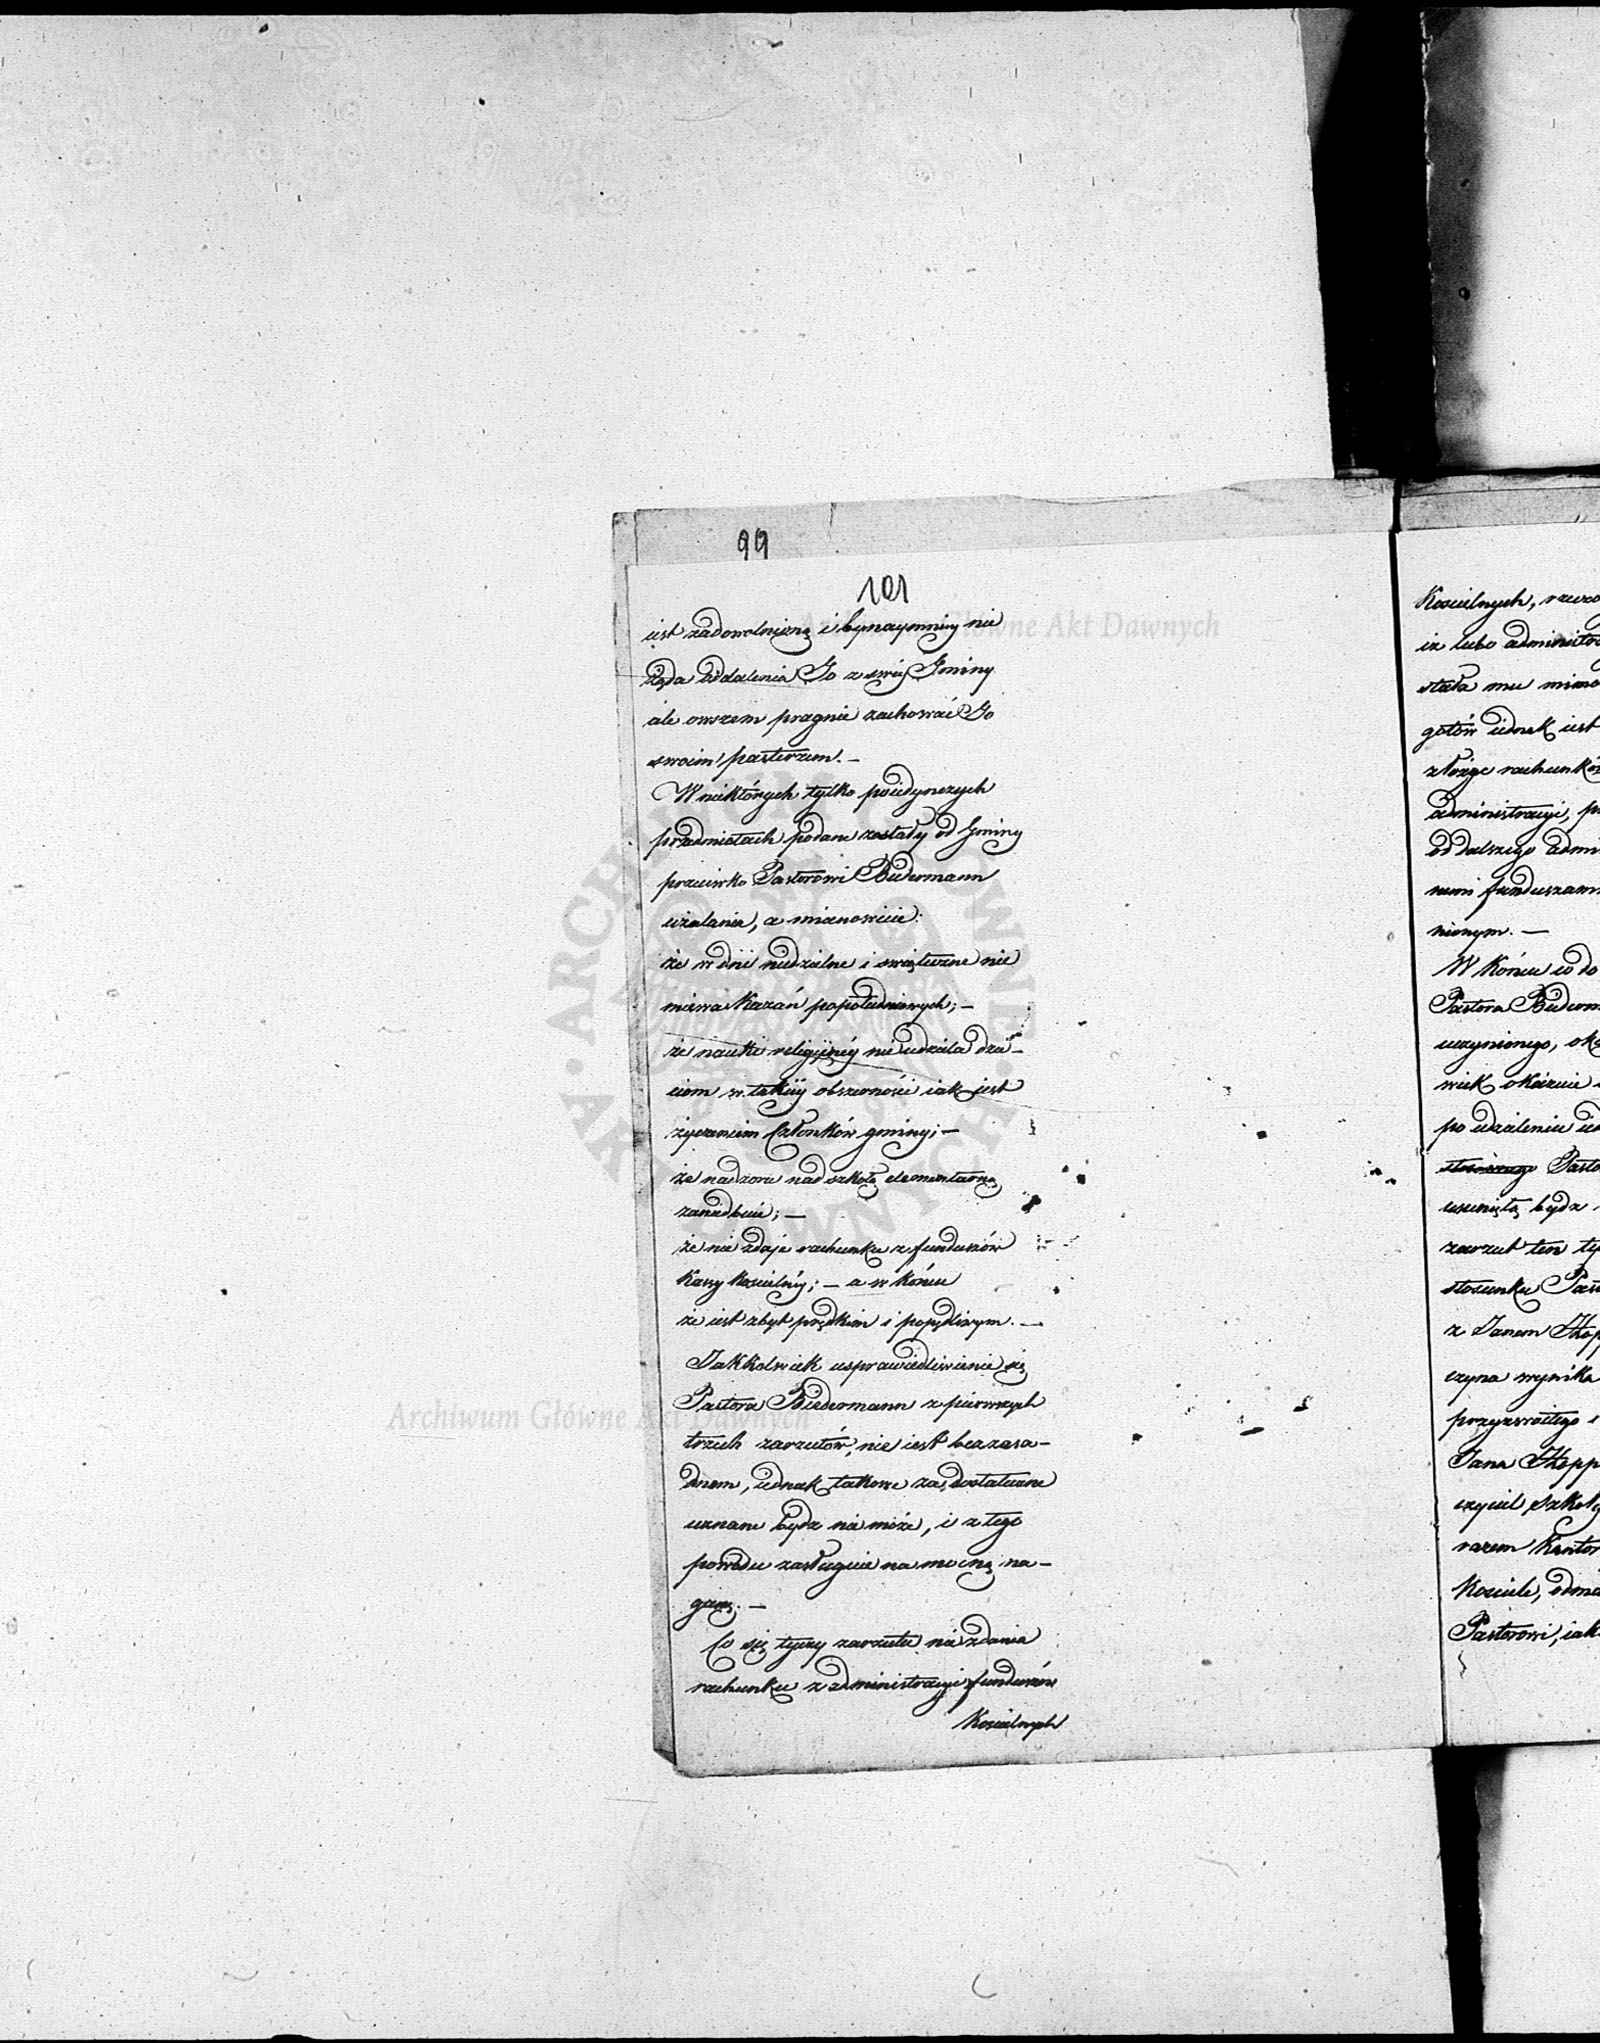 99
101
iest zadowolnioną i bynaymniey nie
żąda oddalenia Go z swéy Gminy
ale owszem pragnie zachować Go
swoim pasterzem. —
W niektórych tylko poiedynczych
przedmiotach podane zostały od Gminy
przeciwko Pastorowi Biedermann
użalania, a mianowicie:
że w dni niedzielne i swiąteczne nie
miewa Kazań popołudniowych; —
że nauki religijnéy nie udziela dzie-
ciom w takiéy obszerności iak jest
życzeniem Członków gminy; —
że nadzoru nad szkołą elementarną
zaniedbuie; —
że nie zdaje rachunku z funduszów
Kassy Kościelnéy; — a w końcu
że iest zbyt prędkim i popędliwym. —
Jakkolwiek usprawiedliwienie się
Pastora Biedermann z pierwszych
trzech zarzutów, nie iest bezzasa-
dnem, iednak takowe za dostateczne
uznane bydz nie może, i z tego
powodu zasługuie na mocną na-
ganę. —
Co się tyczy zarzutu nie zdania
rachunku z administracyi funduszów
Kościelnych
Kościelnych,
iż lubo administra
stała mu
gotów iednak iest
złożyć rachunki
administracyi,
od dalszego admi
nemi funduszami
nionym. —
W końcu co do
Pastora Biederm
uczynionego,
wiek okazuie
po udzieleniu
Pasto
usuniętą bydz
zarzut ten ty
stosunku Past
z Janem Hepp
czyna wynika
przyzwoitego i
Jana Hepp
czyciel Szkoły
razem Kantor
Kościele,
Pastorowi, iak
Archiwum Główne Akt Dawnych
Archiwum Główne Akt Dawnych
ARCHIWUM GŁÓWNE AKT DAWNYCH